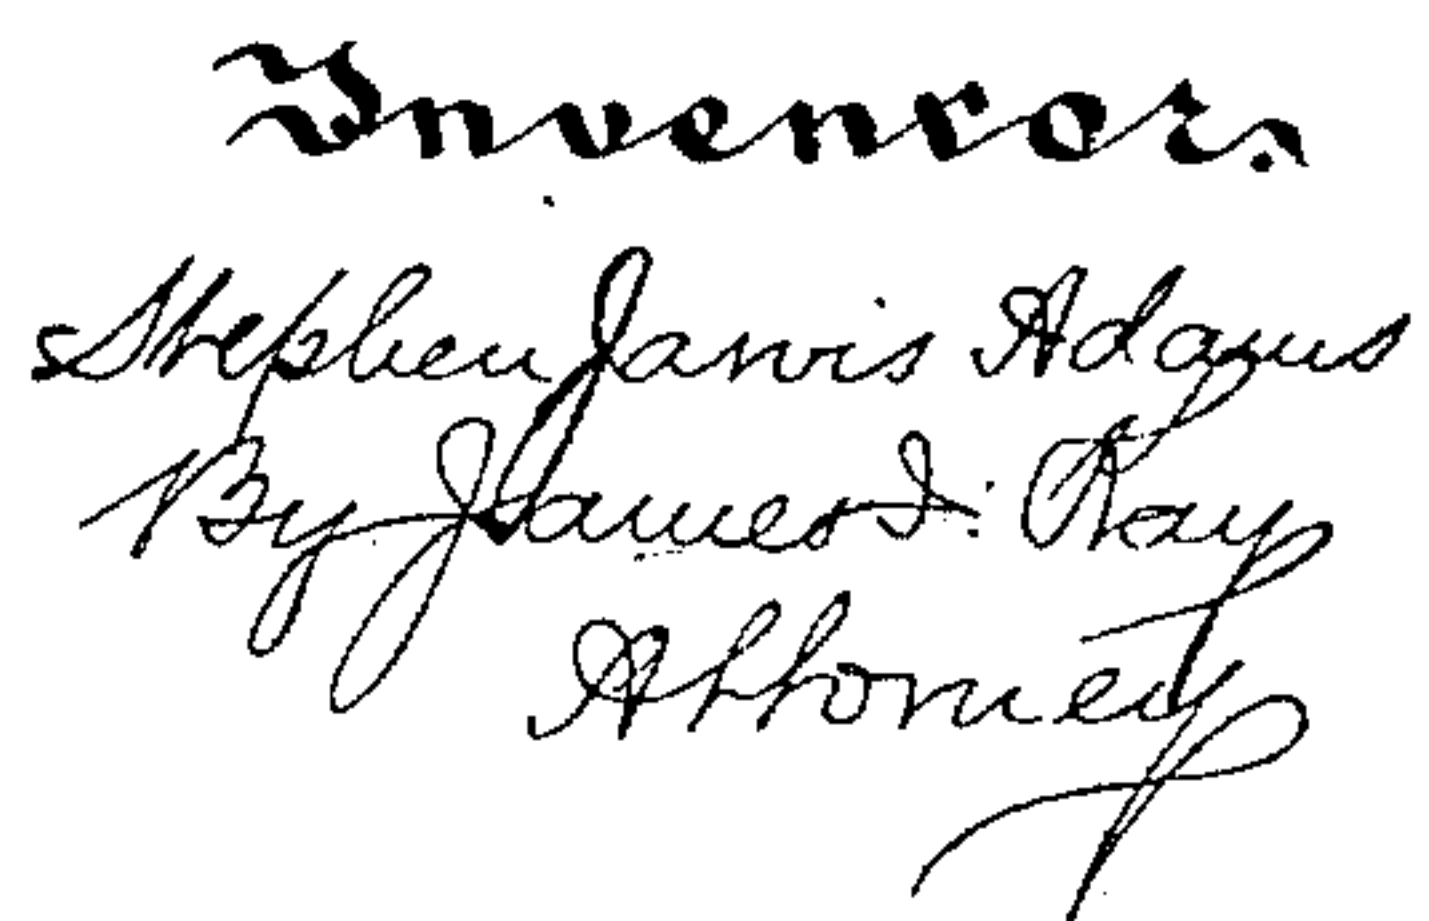 Inventor.
Stephen Jarvis Adams
By James I. Kay
Attorney